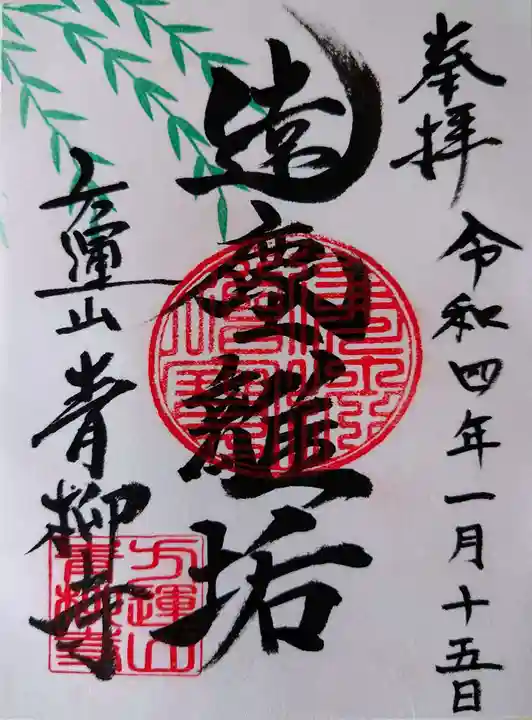 奉拝
令和四年一月十五日
遠塵離垢
方運山
青柳寺
方運山
青柳寺